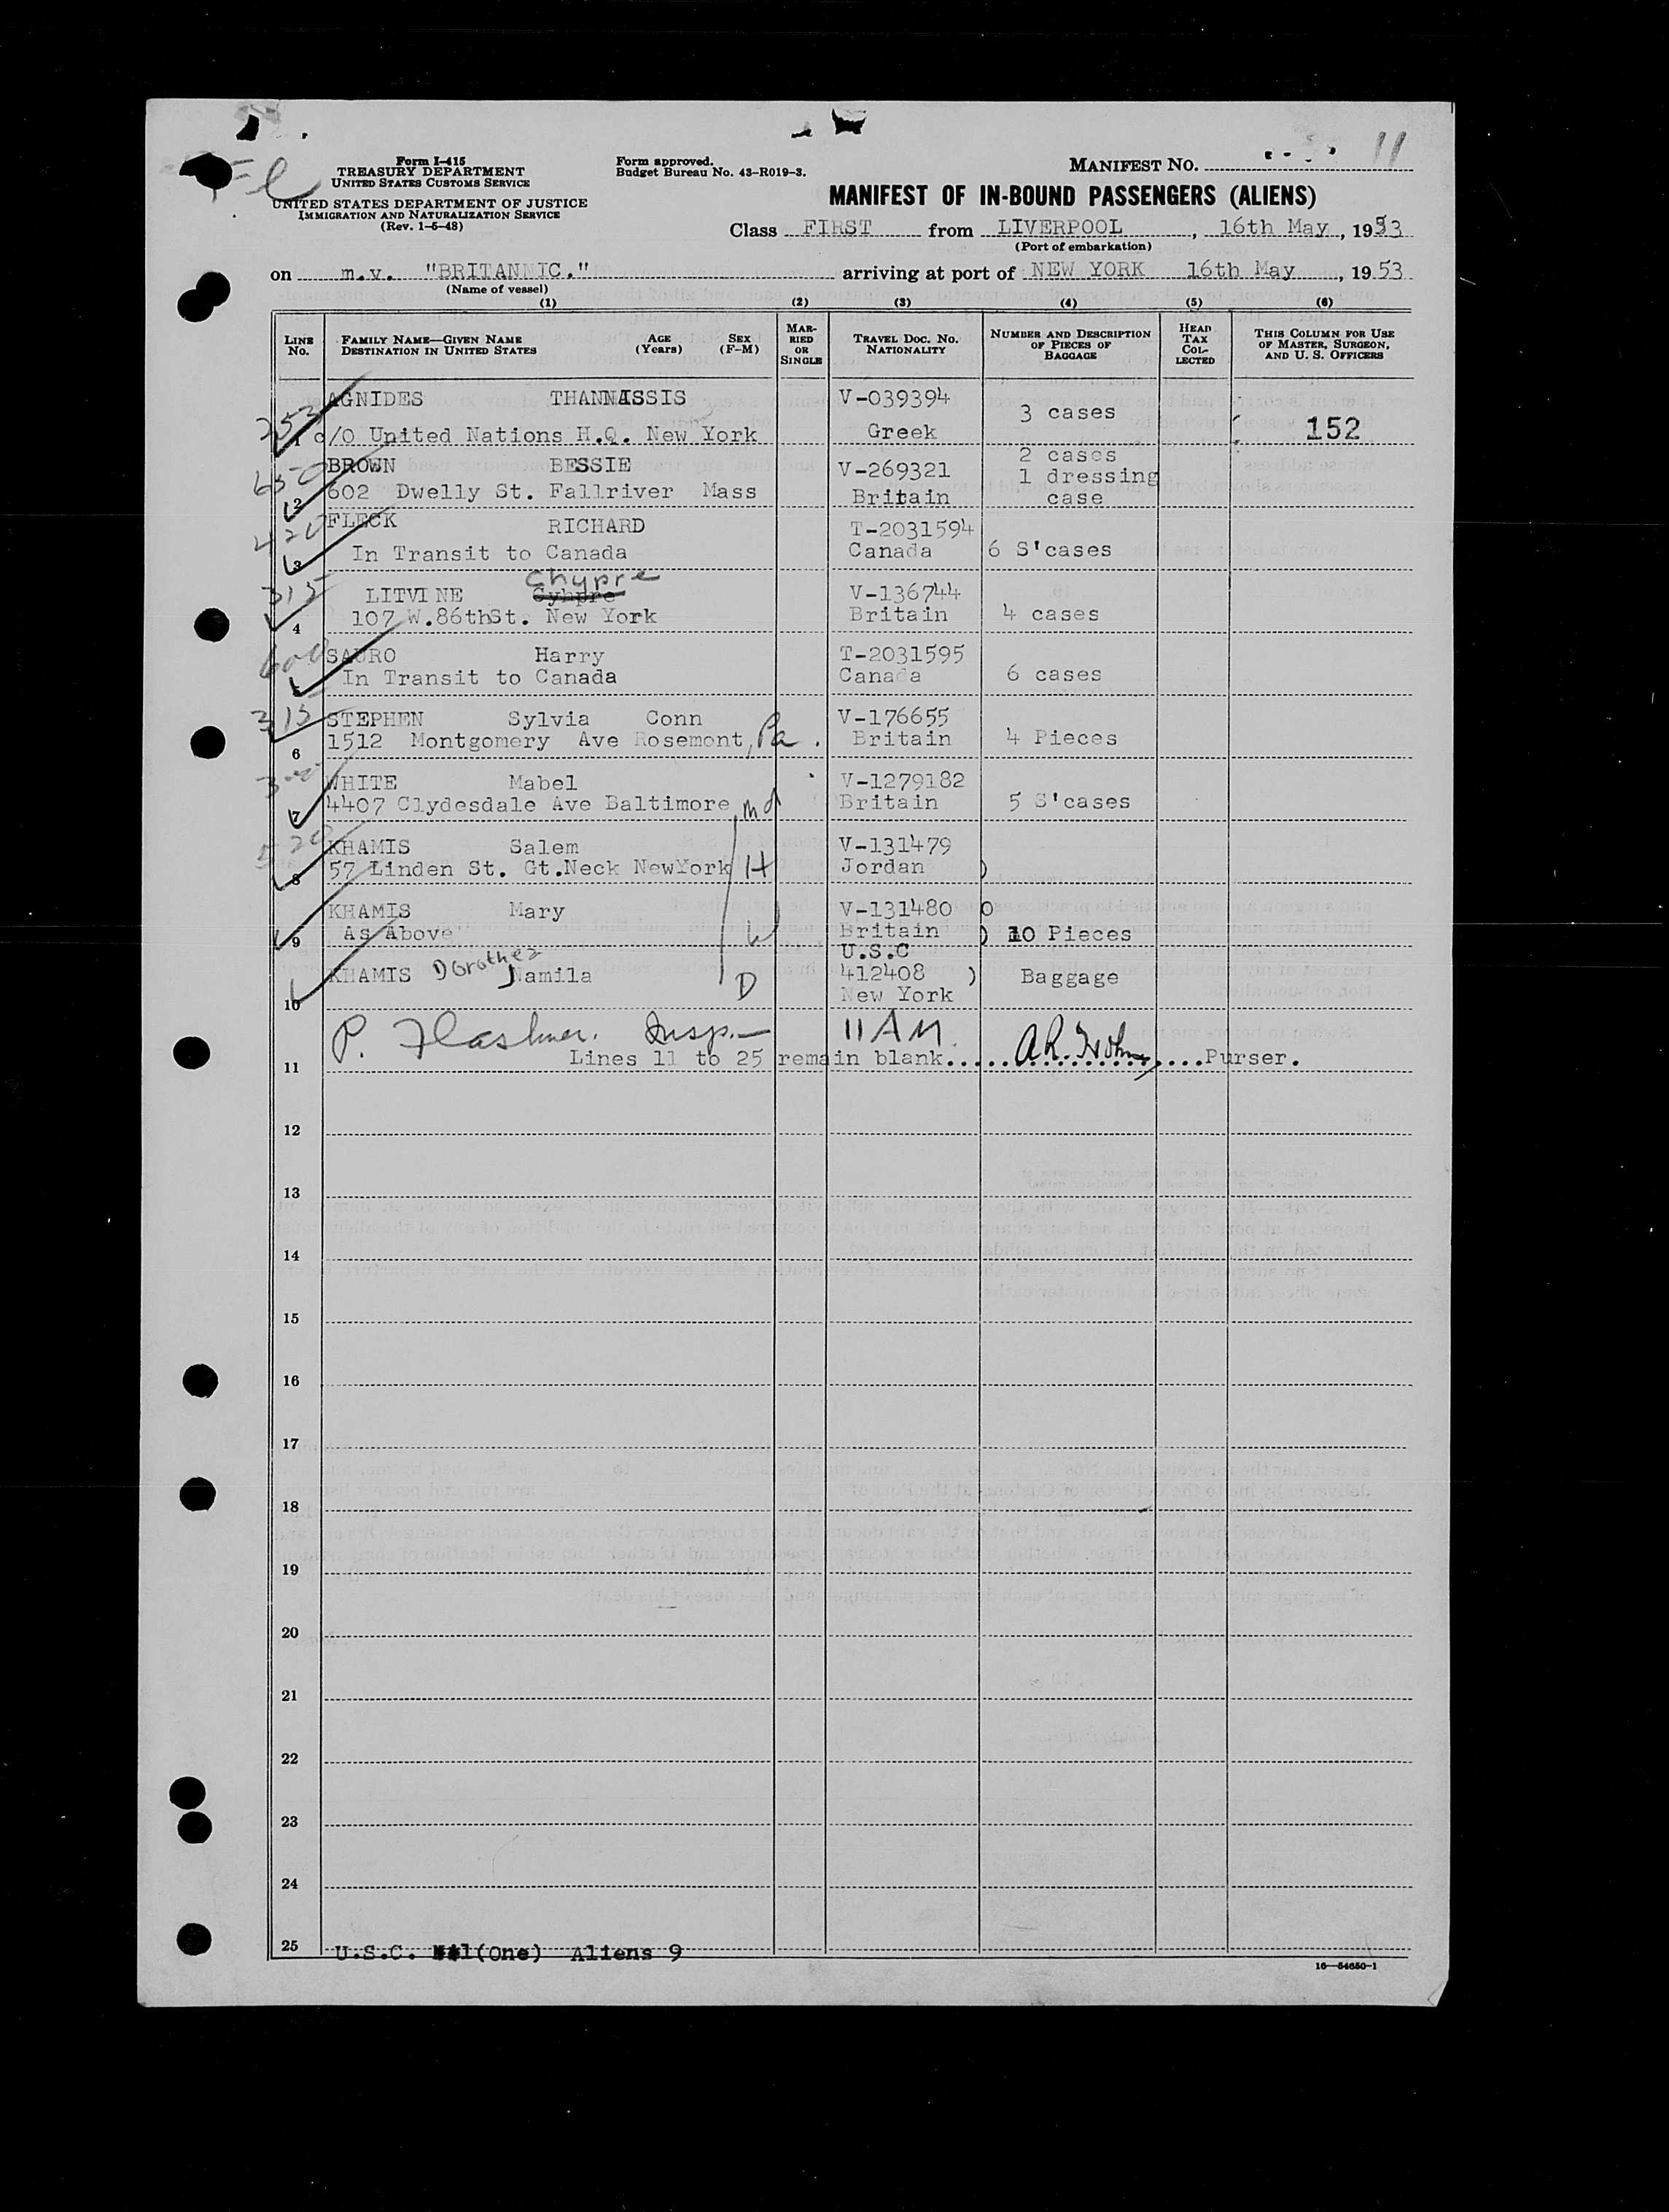 11
Form I-415
TREASURY DEPARTMENT
UNITED STATES CUSTOMS SERVICE
UNITED STATES DEPARTMENT OF JUSTICE
IMMIGRATION AND NATURALIZATION SERVICE
(Rev. 1-5-48)
Form approved.
Budget Bureau No. 43-R019-3.
MANIFEST NO.
MANIFEST OF IN-BOUND PASSENGERS (ALIENS)
Class FIRST from LIVERPOOL, 16th May, 1953
(Port of embarkation)
on m.v. "BRITANNIC." arriving at port of NEW YORK 16th May, 1953
(Name of vessel)
(1) (2) (3) (4) (5) (6)
LINE No. FAMILY NAME—GIVEN NAME DESTINATION IN UNITED STATES AGE (Years) SEX (F-M) MARRIED OR SINGLE TRAVEL DOC. NO. NATIONALITY NUMBER AND DESCRIPTION OF PIECES OF BAGGAGE HEAD TAX COLLECTED THIS COLUMN FOR USE OF MASTER, SURGEON, AND U. S. OFFICERS
253 AGNIDES THANNASSIS V-039394 3 cases
1 c/O United Nations H.Q. New York Greek 152
650 BROWN BESSIE V-269321 2 cases
2 602 Dwelly St. Fallriver Mass Britain 1 dressing case
420 FLECK RICHARD T-2031594
3 In Transit to Canada Canada 6 S'cases
315 LITVINE Cyhpre Chypre V-136744
4 107 W.86thSt. New York Britain 4 cases
600 SAURO Harry T-2031595
5 In Transit to Canada Canada 6 cases
315 STEPHEN Sylvia Conn V-176655
6 1512 Montgomery Ave Rosemont, Pa. Britain 4 Pieces
WHITE Mabel V-1279182
7 4407 Clydesdale Ave Baltimore Md Britain 5 S'cases
520 KHAMIS Salem V-131479
8 57 Linden St. Gt.Neck NewYork H Jordan )
KHAMIS Mary V-131480
9 As Above W Britain ) 10 Pieces
U.S.C
KHAMIS Dorothea Jamila 412408 ) Baggage
10 D New York
P. Flashner. Insp. 11 AM.
11 Lines 11 to 25 remain blank.....Purser.
12
13
14
15
16
17
18
19
20
21
22
23
24
25 U.S.C. 1(One) Aliens 9
16—54650-1